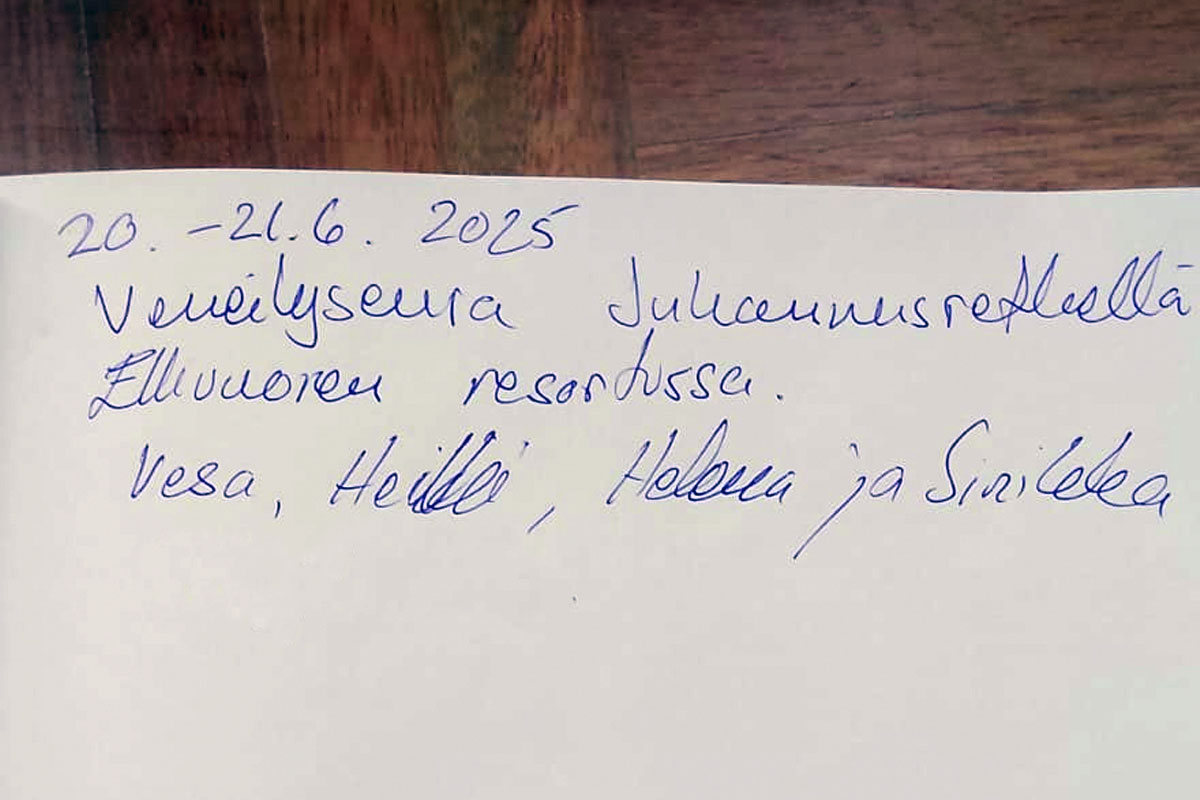 20. -21.6. 2025
Veneilyseura Juhannusretkellä
Ellivuoren resortissa.
Vesa, Heikki, Helena ja Sirikka